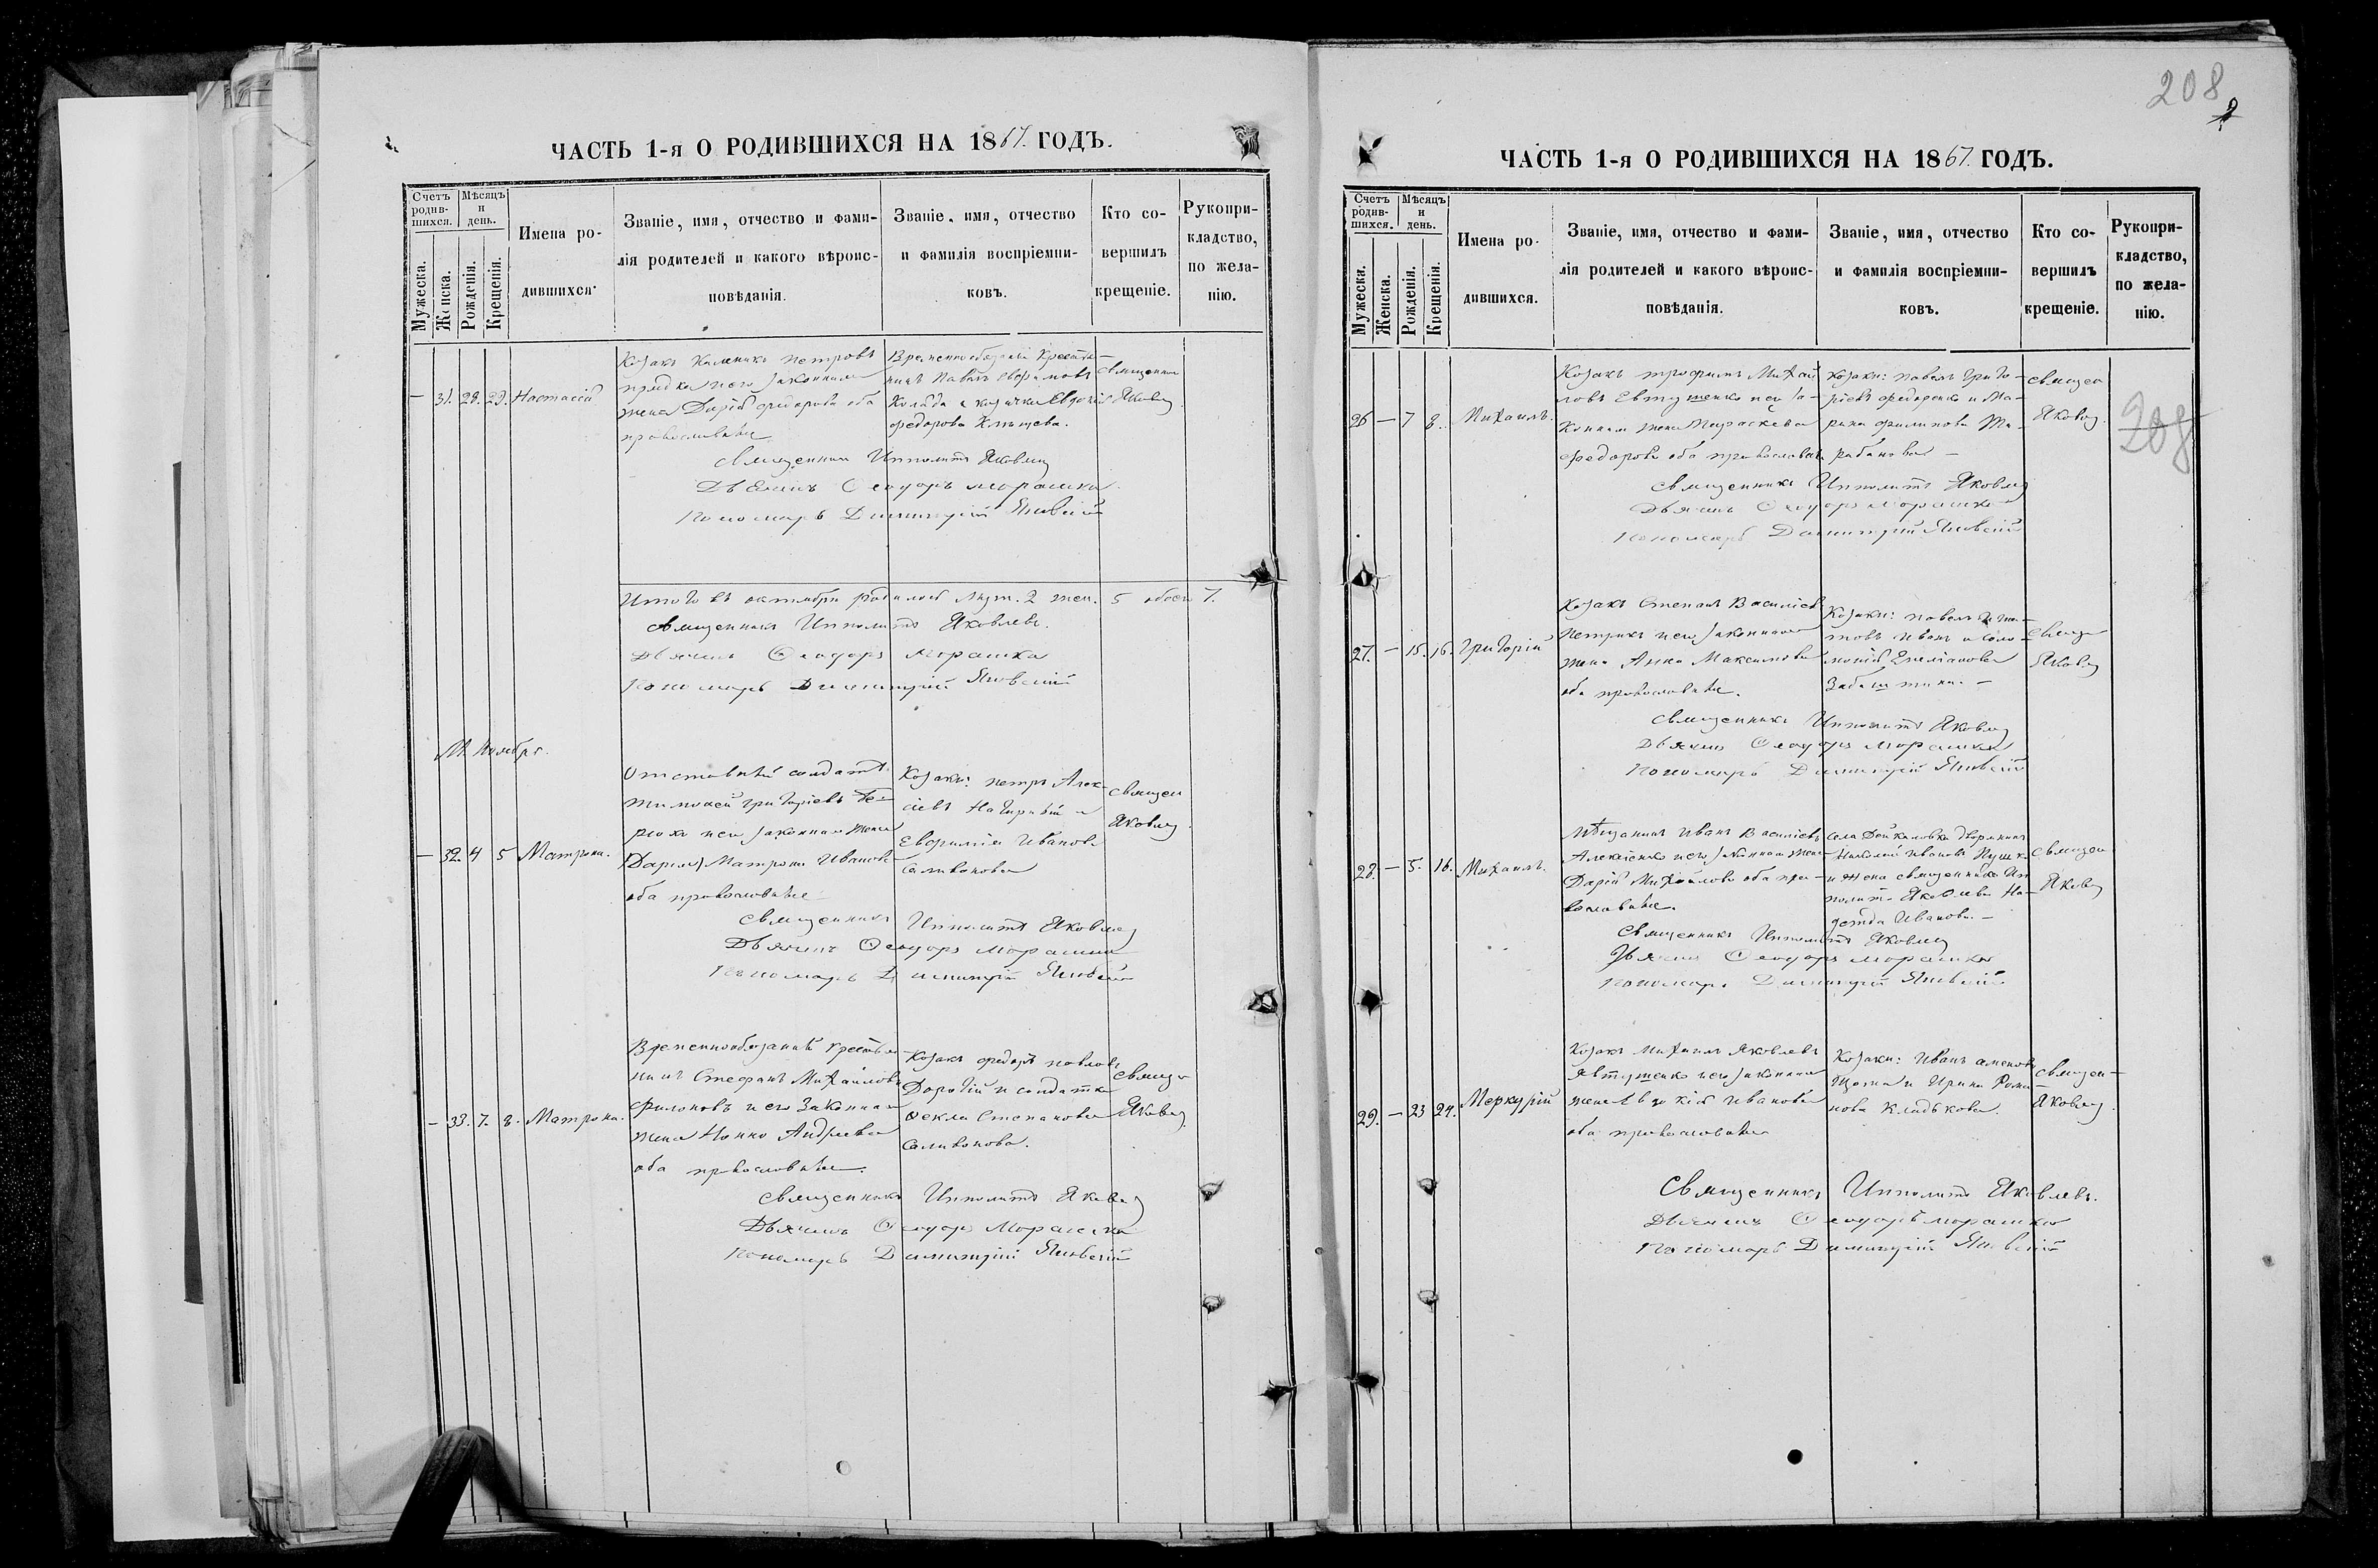 ЧАСТЬ 1-я О РОДИВШИХСЯ НА 1867. ГОДЪ.
Счетъ родив-шихся.
Мѣсяцъ и день.
Мужеска.
Женска.
Рожденія.
Крещенія.
Имена ро-
дившихся.
Званіе, имя, отчество и фами-
лія родителей и какого вѣроис-
повѣданія.
Званіе, имя, отчество
и фамилія воспріемни-
ковъ.
Кто со-
вершилъ
крещеніе.
Рукопри-
кладство,
по жела-
нію.
— 31. 28. 29. Настасія
Козакъ Калиникъ Петровъ
и его законная
жена Дарія Федорова оба
православные
Временнообязаный крестья-
нинъ Павелъ
и козачка Евдокія
Федорова
Священни
Яковлев
Священникъ Ипполитъ Яковлев
Дьячекъ Ѳеодоръ Морашка
Пономарь Димитрій Яновскій
Итого въ октябрѣ родилось муж. 2 жен. 5 обоего 7.
Священникъ Ипполитъ Яковлевъ.
Дьячекъ Ѳеодоръ Морашка
Пономарь Димитрій Яновскій
М. Ноябрь.
— 32. 4 5 Матрона.
Отставный солдатъ
Тимофей Григоріевъ
и его законная жена
(Дарія) Матрона Иванова
оба православные
Козаки: Петръ Алек-
сіевъ Нагирный и
Евфимія Иванова
Селиванова
Священ
Яковлев
Священникъ Ипполитъ Яковлев
Дьячекъ Ѳеодоръ Морашка
Пономарь Димитрій Яновскій
— 33. 7. 8. Матрона.
Временнообязаный крестья-
нинъ Стефанъ Михайловъ
Филоновъ и его законная
жена Ионна Андреева
оба православные.
Козакъ Федоръ Павловъ
Дорогій и солдатка
Ѳекла Степанова
Селиванова.
Священ
Яковлев
Священникъ Ипполитъ Яковлев
Дьячекъ Ѳеодоръ Морашка
Пономарь Димитрій Яновскій
208
ЧАСТЬ 1-я О РОДИВШИХСЯ НА 1867. ГОДЪ.
Счетъ родив-шихся.
Мѣсяцъ и день.
Мужеска.
Женска.
Рожденія.
Крещенія.
Имена ро-
дившихся.
Званіе, имя, отчество и фами-
лія родителей и какого вѣроис-
повѣданія.
Званіе, имя, отчество
и фамилія воспріемни-
ковъ.
Кто со-
вершилъ
крещеніе.
Рукопри-
кладство,
по жела-
нію.
26 — 7 8. Михаилъ.
Козакъ Трофимъ Михай
ловъ Евтушенко и его за-
конная жена Параскева
Федорова оба православн
Козаки: Павелъ Григо-
ріевъ Федоренко и Ма-
рина Филипова
Священ
Яковлев
208
Священникъ Ипполитъ Яковлев
Дьячекъ Ѳеодоръ Морашка
Пономарь Димитрій Яновскій
27. — 15. 16. Григорій
Козакъ Степанъ Василіевъ
Петрикъ и его законная
жена Анна Максимова
оба православные.
Козаки: Павелъ
Священ
Яковлев
Священникъ Ипполитъ Яковлев
Дьячекъ Ѳеодоръ Морашка
Пономарь Димитрій Яновскій
28. — 5. 16. Михаилъ.
Мѣщанинъ Иванъ Василіевъ
Алексіенко и его законная жена
Дарія Михайлова оба пра-
вославные.
Села Дейкаловка дворянинъ
Николай Ивановъ
и жена священника Ип
полита Яковлева На-
дежда Иванова. —
Священ
Яковлев
Священникъ Ипполитъ Яковлев
Дьячекъ Ѳеодоръ Морашка
Пономарь Димитрій Яновскій
29. — 23 24. Меркурій
Козакъ Михаилъ Яковлевъ
Явтушенко и его законная
жена Евдокія Иванова
оба православные
Козаки: Иванъ
и Ирина Рома-
нова Кладькова.
Священ-
Яковлев
Священникъ Ипполитъ Яковлевъ.
Дьячекъ Ѳеодоръ Морашка
Пономарь Димитрій Яновскій